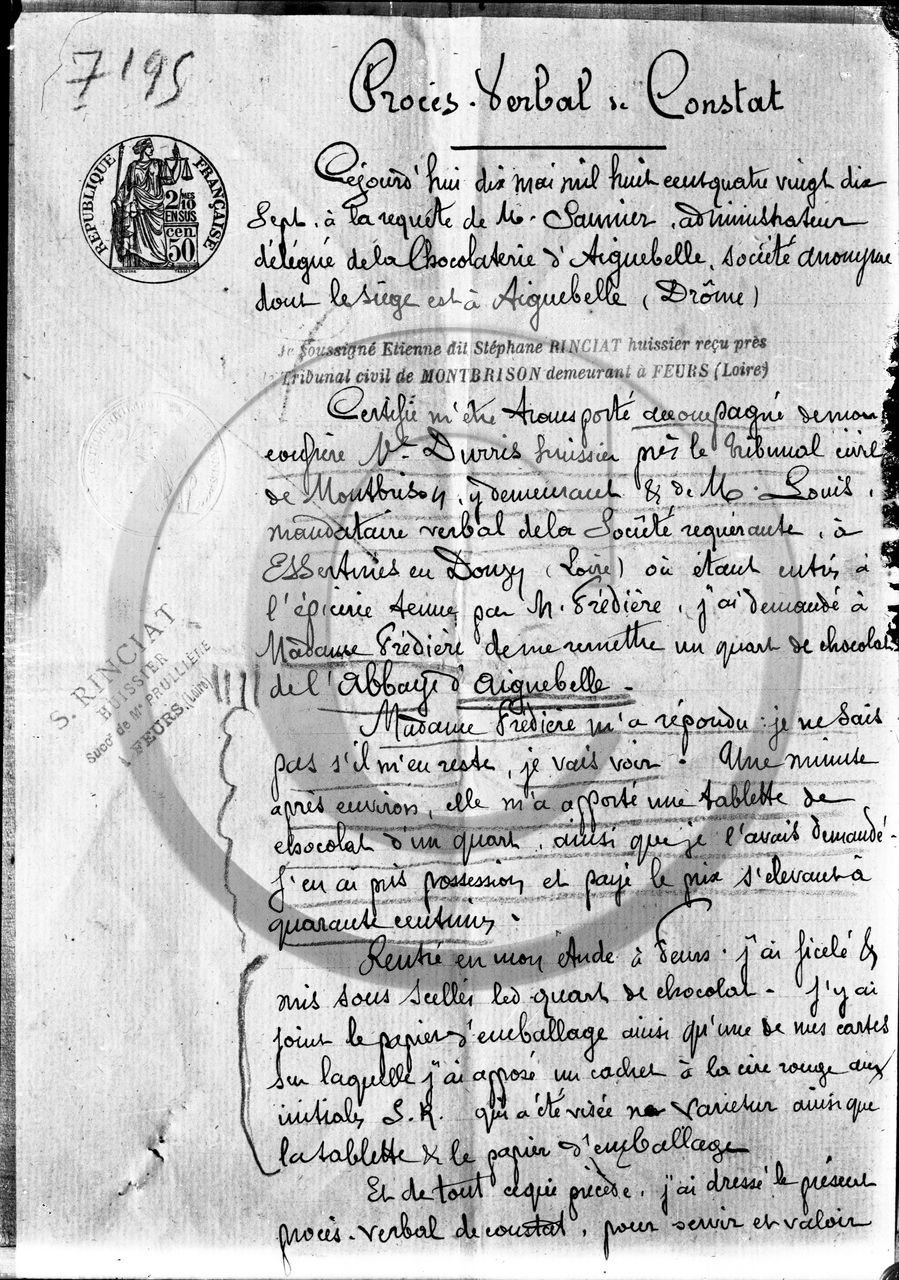 7195
Procès-Verbal de Constat
RÉPUBLIQUE FRANÇAISE
2/10MES
EN SUS
cen
50
Cejourd'hui dix mai mil huit cent quatre vingt dix
Sept, à la requête de M. Saunier, administrateur
délégué de la Chocolaterie d'Aiguebelle, société anonyme
dont le siège est à Aiguebelle (Drôme)
Je soussigné Etienne dit Stéphane RINCIAT huissier reçu près
Tribunal civil de MONTBRISON demeurant à FEURS (Loire)
Certifie m'être transporté accompagné de mon
confrère Me Durris huissier près le Tribunal civil
de Montbrison, y demeurant & de M. Louis,
mandataire verbal de la Société requérante, à
Essertines en Donzy (Loire) où étant entrés à
l'épicerie tenue par M. Frédière, j'ai demandé à
Madame Frédière de me remettre un quart de chocolat
de l'Abbaye d'Aiguebelle -
S. RINCIAT
HUISSIER
Succr de Me PRULLIÈRE
à FEURS (Loire)
Madame Frédière m'a répondu : je ne sais
pas s'il m'en reste, je vais voir. Une minute
après environ, elle m'a apporté une tablette de
chocolat d'un quart, ainsi que je l'avais demandé -
J'en ai pris possession et payé le prix s'élevant à
quarante centimes.
Rentré en mon étude à Feurs, j'ai ficelé &
mis sous scellés led quart de chocolat - J'y ai
joint le papier d'emballage ainsi qu'une de mes cartes
sur laquelle j'ai apposé un cachet à la cire rouge aux
initiales S.R. qui a été visée ne varietur ainsi que
la tablette & le papier d'emballage
Et de tout ce que précède, j'ai dressé le présent
procès-verbal de constat, pour servir et valoir